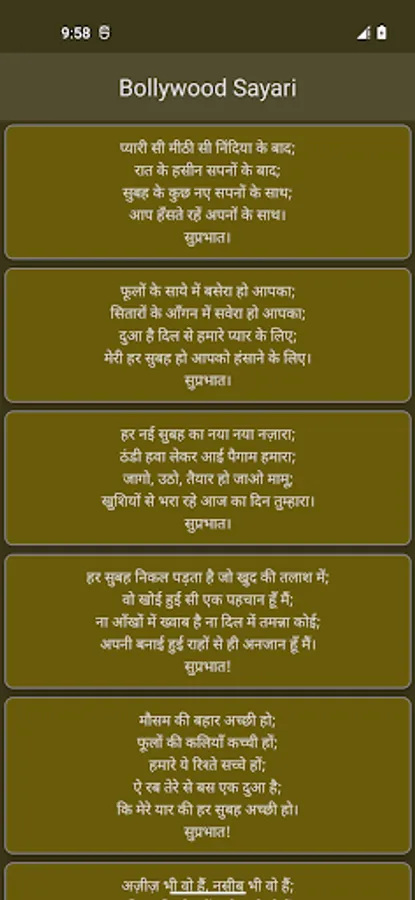 9:58
Bollywood Sayari
प्यारी सी मीठी सी निंदिया के बाद;
रात के हसीन सपनों के बाद;
सुबह के कुछ नए सपनों के साथ;
आप हँसते रहें अपनों के साथ।
सुप्रभात।
फूलों के साये में बसेरा हो आपका;
सितारों के आँगन में सवेरा हो आपका;
दुआ है दिल से हमारे प्यार के लिए;
मेरी हर सुबह हो आपको हंसाने के लिए।
सुप्रभात।
हर नई सुबह का नया नया नज़ारा;
ठंडी हवा लेकर आई पैगाम हमारा;
जागो, उठो, तैयार हो जाओ मामू;
खुशियों से भरा रहे आज का दिन तुम्हारा।
सुप्रभात।
हर सुबह निकल पड़ता है जो खुद की तलाश में;
वो खोई हुई सी एक पहचान हूँ मैं;
ना आँखों में ख्वाब है ना दिल में तमन्ना कोई;
अपनी बनाई हुई राहों से ही अनजान हूँ मैं।
सुप्रभात!
मौसम की बहार अच्छी हो;
फूलों की कलियाँ कच्ची हों;
हमारे ये रिश्ते सच्चे हों;
ऐ रब तेरे से बस एक दुआ है;
कि मेरे यार की हर सुबह अच्छी हो।
सुप्रभात!
अज़ीज़ भी वो हैं, नसीब भी वो हैं;